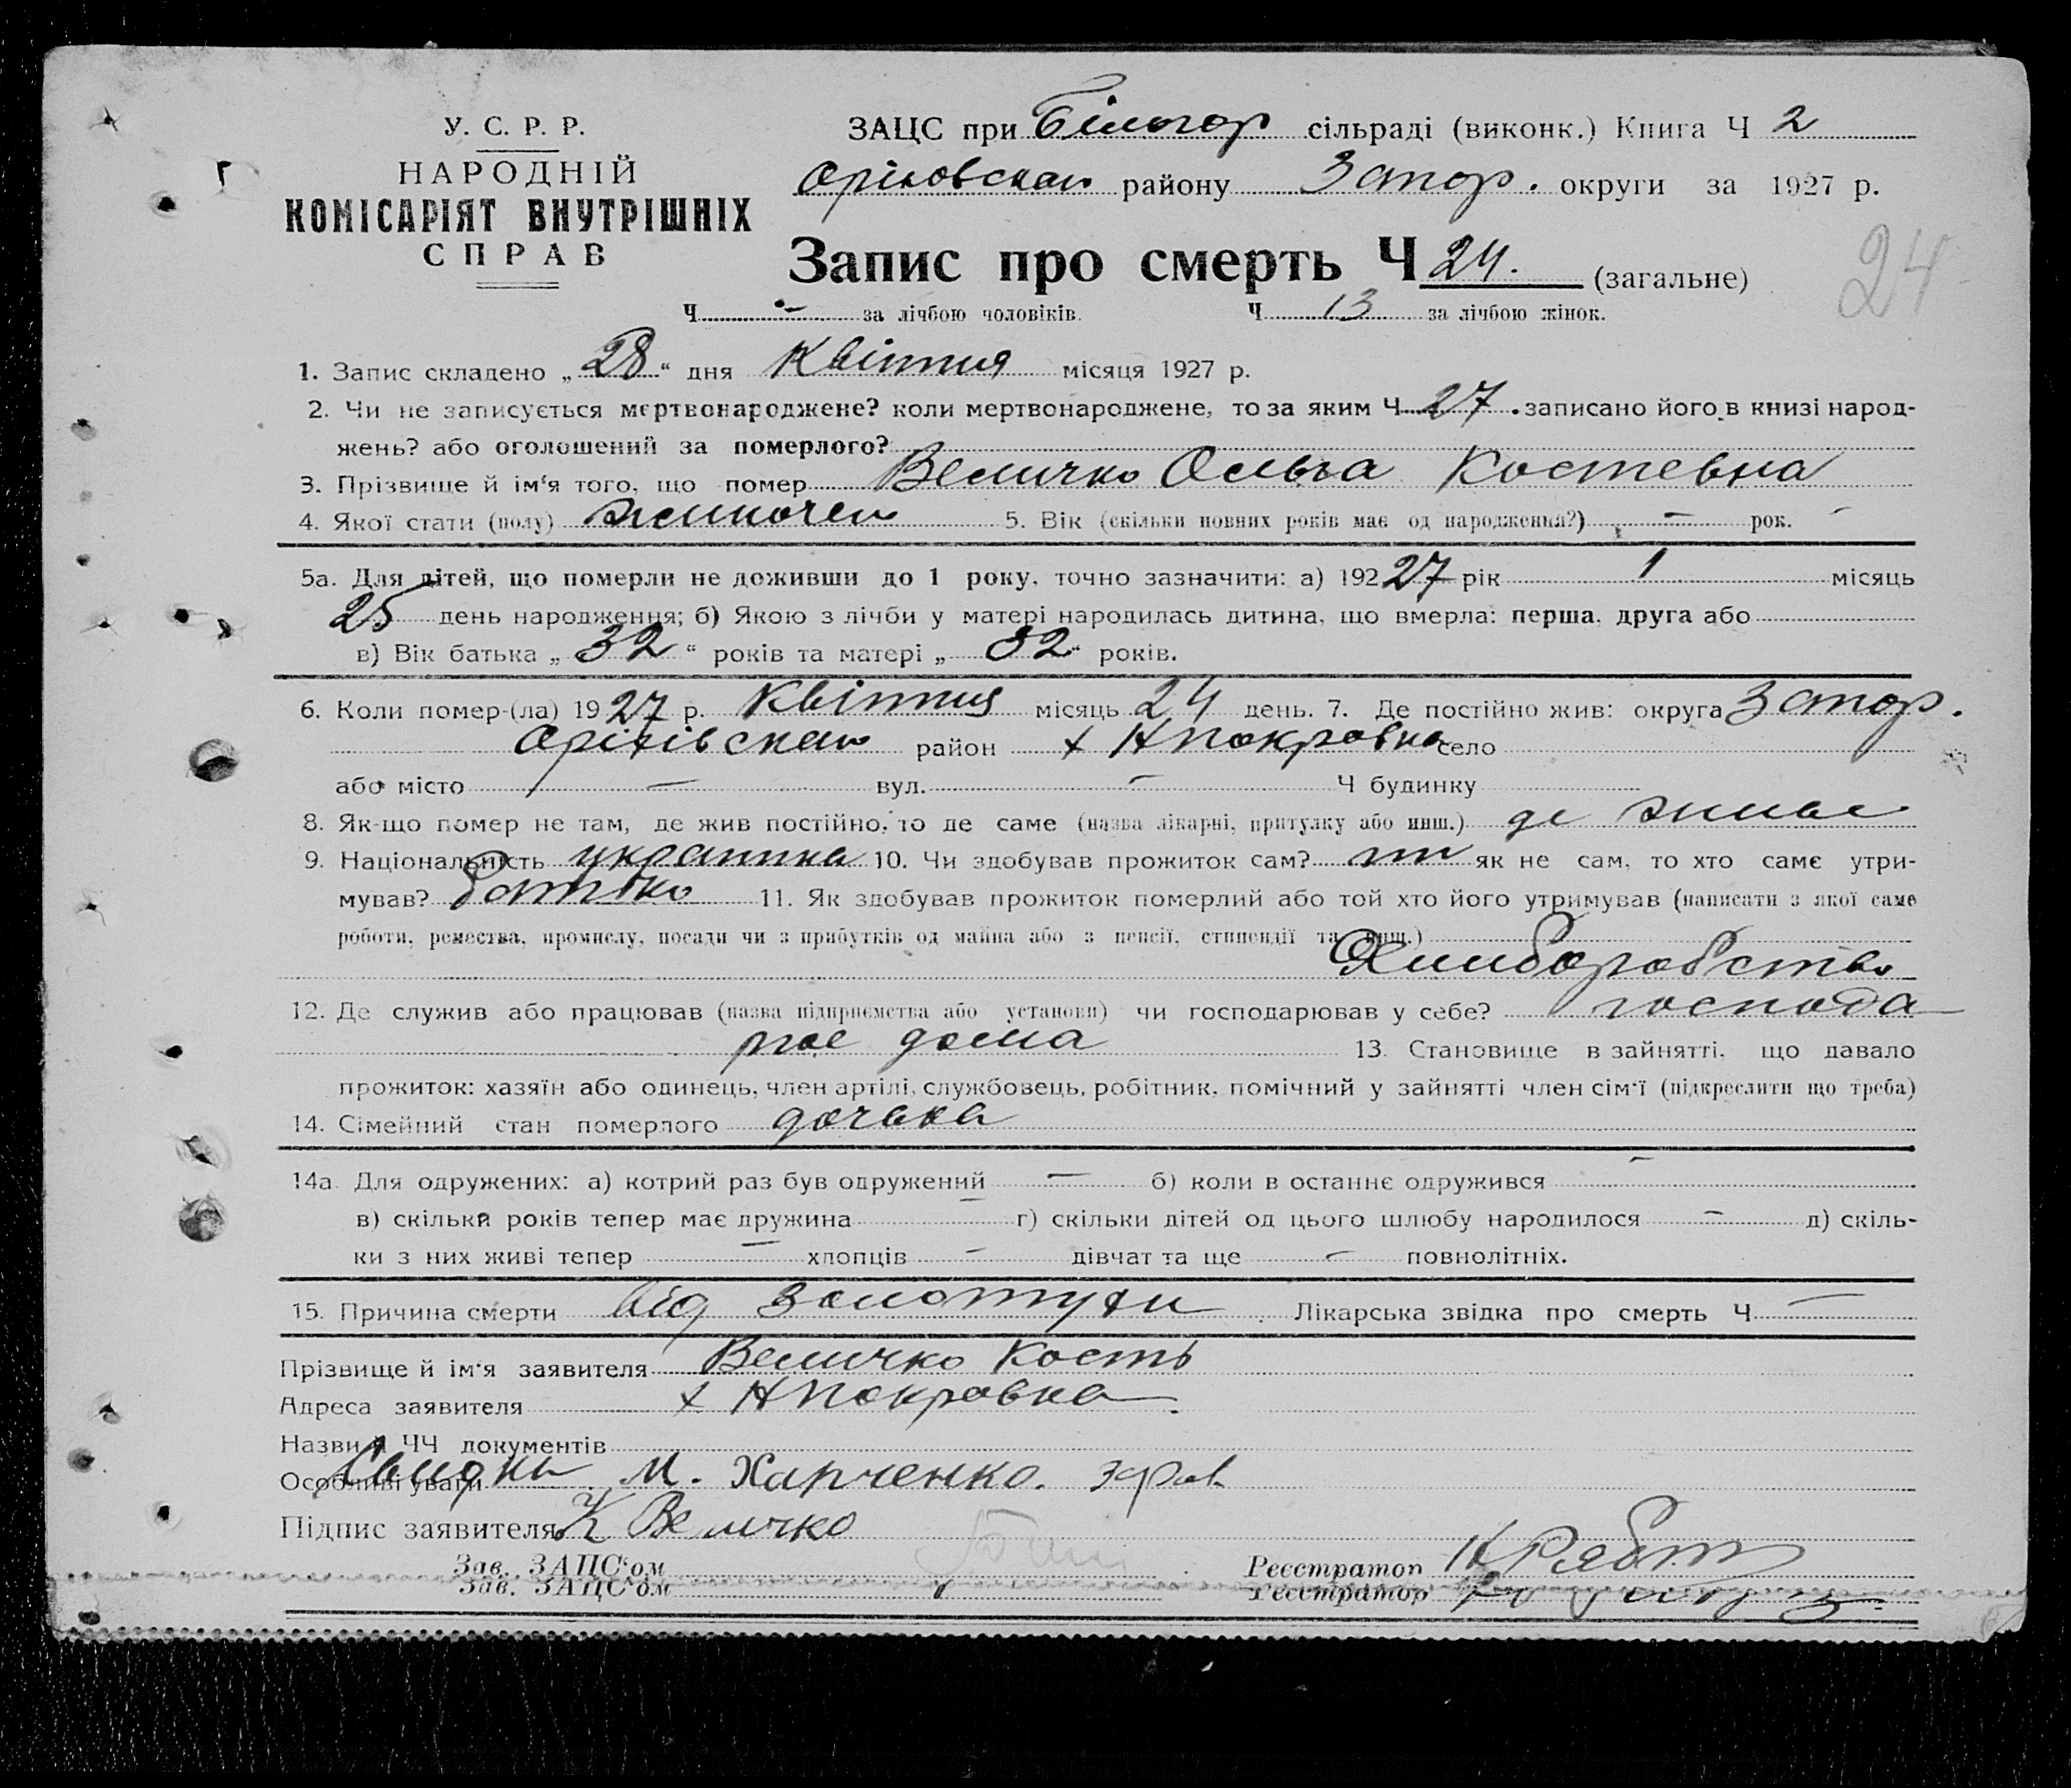 У. С. Р. Р.
НАРОДНІЙ
КОМІСАРІЯТ ВНУТРІШНІХ
СПРАВ
ЗАЦС при Білогор сільраді (виконк.) Книга Ч 2
району Запор. округи за 1927 р.
Запис про смерть Ч 24. (загальне)
24
Ч - за лічбою чоловіків. Ч 13 за лічбою жінок.
1. Запис складено „28“ дня Квітня місяця 1927 р.
2. Чи не записується мертвонароджене? коли мертвонароджене, то за яким Ч 27. записано його в книзі народ-
жень? або оголошений за померлого?
3. Прізвище й ім‘я того, що помер Величко Ольга Костевна
4. Якої стати (полу) 5. Вік (скільки повних років має од народження?) — рок.
5а. Для дітей, що померли не доживши до 1 року, точно зазначити: а) 192 27 рік 1 місяць
25 день народження; б) Якою з лічби у матері народилась дитина, що вмерла: перша, друга або
в) Вік батька „32“ років та матері „32“ років.
6. Коли помер-(ла) 1927 р. Квітня місяць 24 день. 7. Де постійно жив: округа Запор.
район х Нпокровка село
або місто — вул. — Ч будинку
8. Як-що помер не там, де жив постійно, то де саме (назва лікарні, притулку або инш.) де живе
9. Національність українка 10. Чи здобував прожиток сам? ні як не сам, то хто саме утри-
мував? батько 11. Як здобував прожиток померлий або той хто його утримував (написати з якої саме
роботи, ремества, промислу, посади чи з прибутків од майна або з пенсії, стипендії та инш.)
Хлиборобство
12. Де служив або працював (назва підприємства або установи) чи господарював у себе? господа
рює дома 13. Становище в зайнятті, що давало
прожиток: хазяїн або одинець, член артілі, службовець, робітник, помічний у зайнятті член сім‘ї (підкреслити що треба)
14. Сімейний стан померлого дочька
14а. Для одружених: а) котрий раз був одружений — б) коли в останнє одружився —
в) скільки років тепер має дружина — г) скільки дітей од цього шлюбу народилося — д) скіль-
ки з них живі тепер — хлопців — дівчат та ще — повнолітніх.
15. Причина смерти від золотухи Лікарська звідка про смерть Ч —
Прізвище й ім‘я заявителя Величко Кость
Адреса заявителя х Нпокровка.
Назви й ЧЧ документів
Особливі уваги М. Харченко.
Підпис заявителя К Величко
Зав. ЗАПС‘ом Реєстратор
Зав. ЗАЦС‘ом Реєстратор